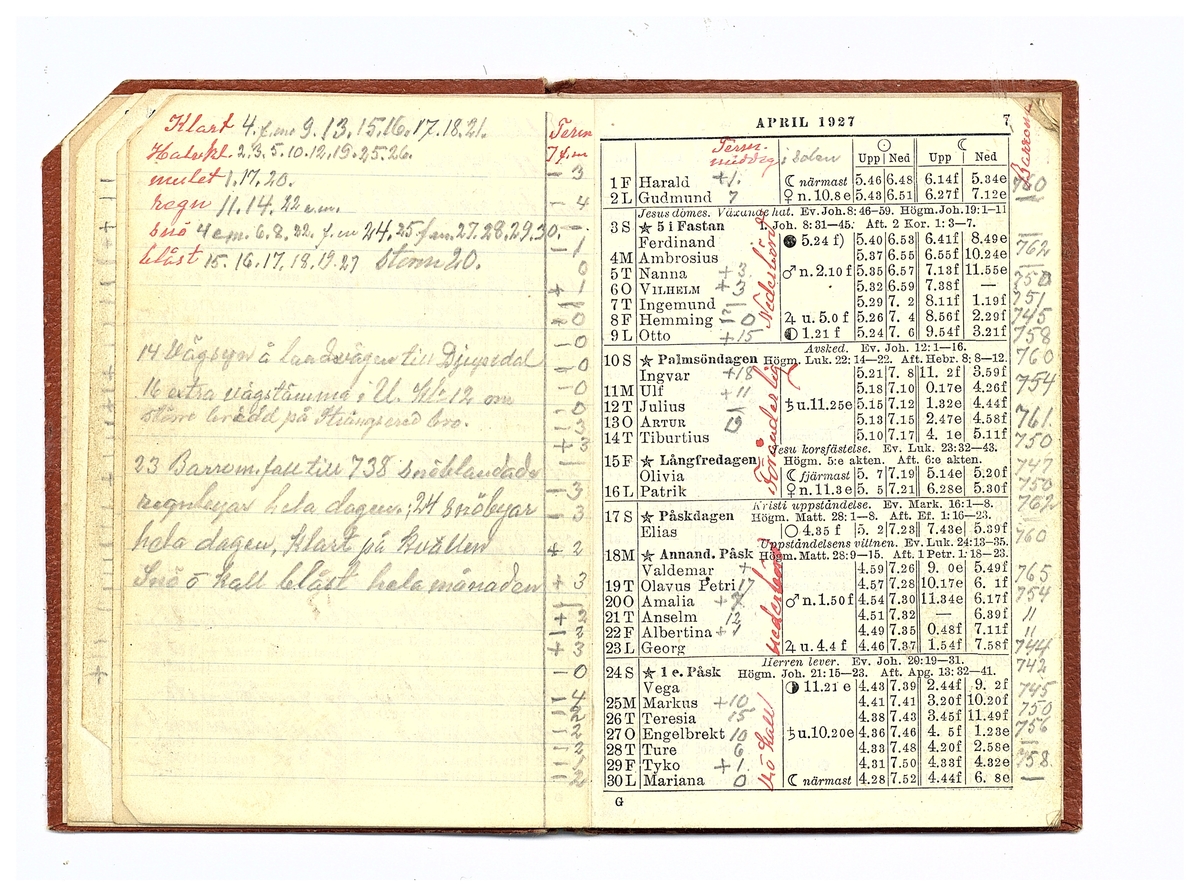 Klart 4. f.m. 9. 13. 15. 16. 17. 18. 21.
Halvkl. 2. 3. 5. 10. 12. 19. 25. 26.
mulet 1. 17. 20.
regn 11. 14. 22 e.m.
snö 4 e.m. 6. 8. 22. f.m 24. 25. f.m. 27. 28. 29. 30.
blåst 15. 16. 17. 18. 19. 27 Storm 20.
14 Vägsyn å landsvägen till Djupedal
16 extra vägstämma i U. Kl. 12 om
större bredd på Strängsered bro.
23 Barrom. fall till 738 snöblandade
regnbyar hela dagen. 24 Snöbyar
hela dagen, klart på kvällen
Snö o kall blåst hela månaden
Term
7 f.m
- 3
- 4
- 1
0
0
0
0
0
3
+ 3
- 3
- 3
+ 2
+ 3
+ 3
- 0
APRIL 1927 7
Term. middag i solen
Barrom
Upp Ned Upp Ned
1 F Harald +1. ☾ närmast 5.46 6.48 6.14f 5.34e 760
2 L Gudmund 7 ♀ n. 10.8 e 5.43 6.51 6.27f 7.12e
Jesus dömes. Växande hat. Ev. Joh. 8: 46–59. Högm. Joh. 19: 1–11
3 S ★ 5 i Fastan 1. Joh. 8: 31–45. Aft. 2 Kor. 1: 3–7.
Ferdinand ● 5.24 f) 5.40 6.53 6.41f 8.49e 762
4 M Ambrosius 5.37 6.55 6.55f 10.24e —
5 T Nanna +3. ♂ n. 2.10 f 5.35 6.57 7.13f 11.55e 750
6 O VILHELM +3 5.32 6.59 7.38f — 751
7 T Ingemund 5.29 7. 2 8.11f 1.19f 745
8 F Hemming 0 ♃ u. 5.0 f 5.26 7. 4 8.56f 2.29f 758
9 L Otto +15 ◐ 1.21 f 5.24 7. 6 9.54f 3.21f 760
Nederbörd
Avsked. Ev. Joh. 12: 1–16.
10 S ★ Palmsöndagen Högm. Luk. 22: 14–22. Aft. Hebr. 8: 8–12.
Ingvar +18 5.21 7. 8 11. 2f 3.59f 754
11 M Ulf +11 5.18 7.10 0.17e 4.26f
12 T Julius — ♄ u. 11.25e 5.15 7.12 1.32e 4.44f 761.
13 O ARTUR 19 5.13 7.15 2.47e 4.58f 750
14 T Tiburtius 5.10 7.17 4. 1e 5.11f
Jesu korsfästelse. Ev. Luk. 23: 32–43.
15 F ★ Långfredagen Högm. 5:e akten. Aft. 6:o akten. 747
Olivia ☾ fjärmast 5. 7 7.19 5.14e 5.20f 750
16 L Patrik ♀ n. 11.3 e 5. 5 7.21 6.28e 5.30f 762
Föränderlig
Kristi uppståndelse. Ev. Mark. 16: 1–8.
17 S ★ Påskdagen Högm. Matt. 28: 1–8. Aft. Ef. 1: 16–23.
Elias ○ 4.35 f 5. 2 7.23 7.43e 5.39f 760
Uppståndelsens vittnen. Ev. Luk. 24: 13–35.
18 M ★ Annand. Påsk Högm. Matt. 28: 9–15. Aft. 1 Petr. 1: 18–23.
Valdemar + 4.59 7.26 9. 0e 5.49f 765
19 T Olavus Petri 17 4.57 7.28 10.17e 6. 1f 754
20 O Amalia ♂ n. 1.50 f 4.54 7.30 11.34e 6.17f "
21 T Anselm 12 4.51 7.32 — 6.39f "
22 F Albertina +1 4.49 7.35 0.48f 7.11f 744
23 L Georg ♃ u. 4.4 f 4.46 7.37 1.54f 7.58f 742.
nederbörd
Herren lever. Ev. Joh. 20: 19–31.
24 S ★ 1 e. Påsk Högm. Joh. 21: 15–23. Aft. Apg. 13: 32–41.
Vega ◑ 11.21 e 4.43 7.39 2.44f 9. 2f 745
25 M Markus +10 4.41 7.41 3.20f 10.20f 750
26 T Teresia 15 4.38 7.43 3.45f 11.49f 756
27 O Engelbrekt 10 ♄ u. 10.20e 4.36 7.46 4. 5f 1.23e —
28 T Ture 6 4.33 7.48 4.20f 2.58e
29 F Tyko +1. 4.31 7.50 4.33f 4.32e 758.
30 L Mariana 0 ☾ närmast 4.28 7.52 4.44f 6. 8e —
kall
G